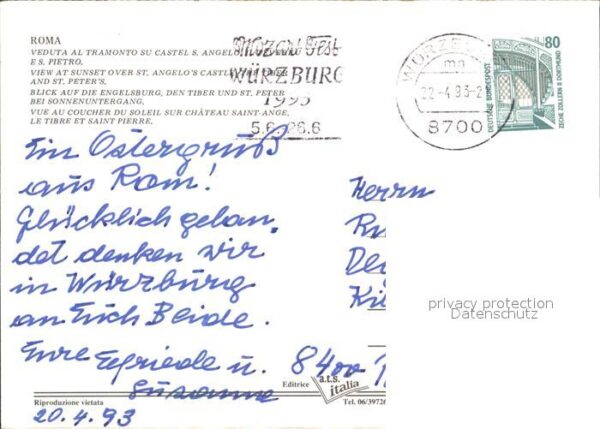 ROMA
VEDUTA AL TRAMONTO SU CASTEL S. ANGELO, IL TEVERE
E S. PIETRO.
VIEW AT SUNSET OVER ST. ANGELO'S CASTLE, THE TIBER
AND ST. PETER'S.
BLICK AUF DIE ENGELSBURG, DEN TIBER UND ST. PETER
BEI SONNENUNTERGANG,
VUE AU COUCHER DU SOLEIL SUR CHÂTEAU SAINT-ANGE,
LE TIBRE ET SAINT PIERRE,
Mozart Fest
WÜRZBURG
1993
5.6.-26.6
WÜRZBURG
mn
22-4.93-2
8700
80
DEUTSCHE BUNDESPOST
ZECHE ZOLLERN II DORTMUND
Ein Ostergruß
aus Rom!
Glücklich gelan,
det denken wir
in Würzburg
an Euch Beide.
Eure Egfriede u.
Susanne
20.4.93
Herrn
8400
privacy protection
Datenschutz
Riproduzione vietata
Editrice
a.t.s.
italia
Tel. 06/39726